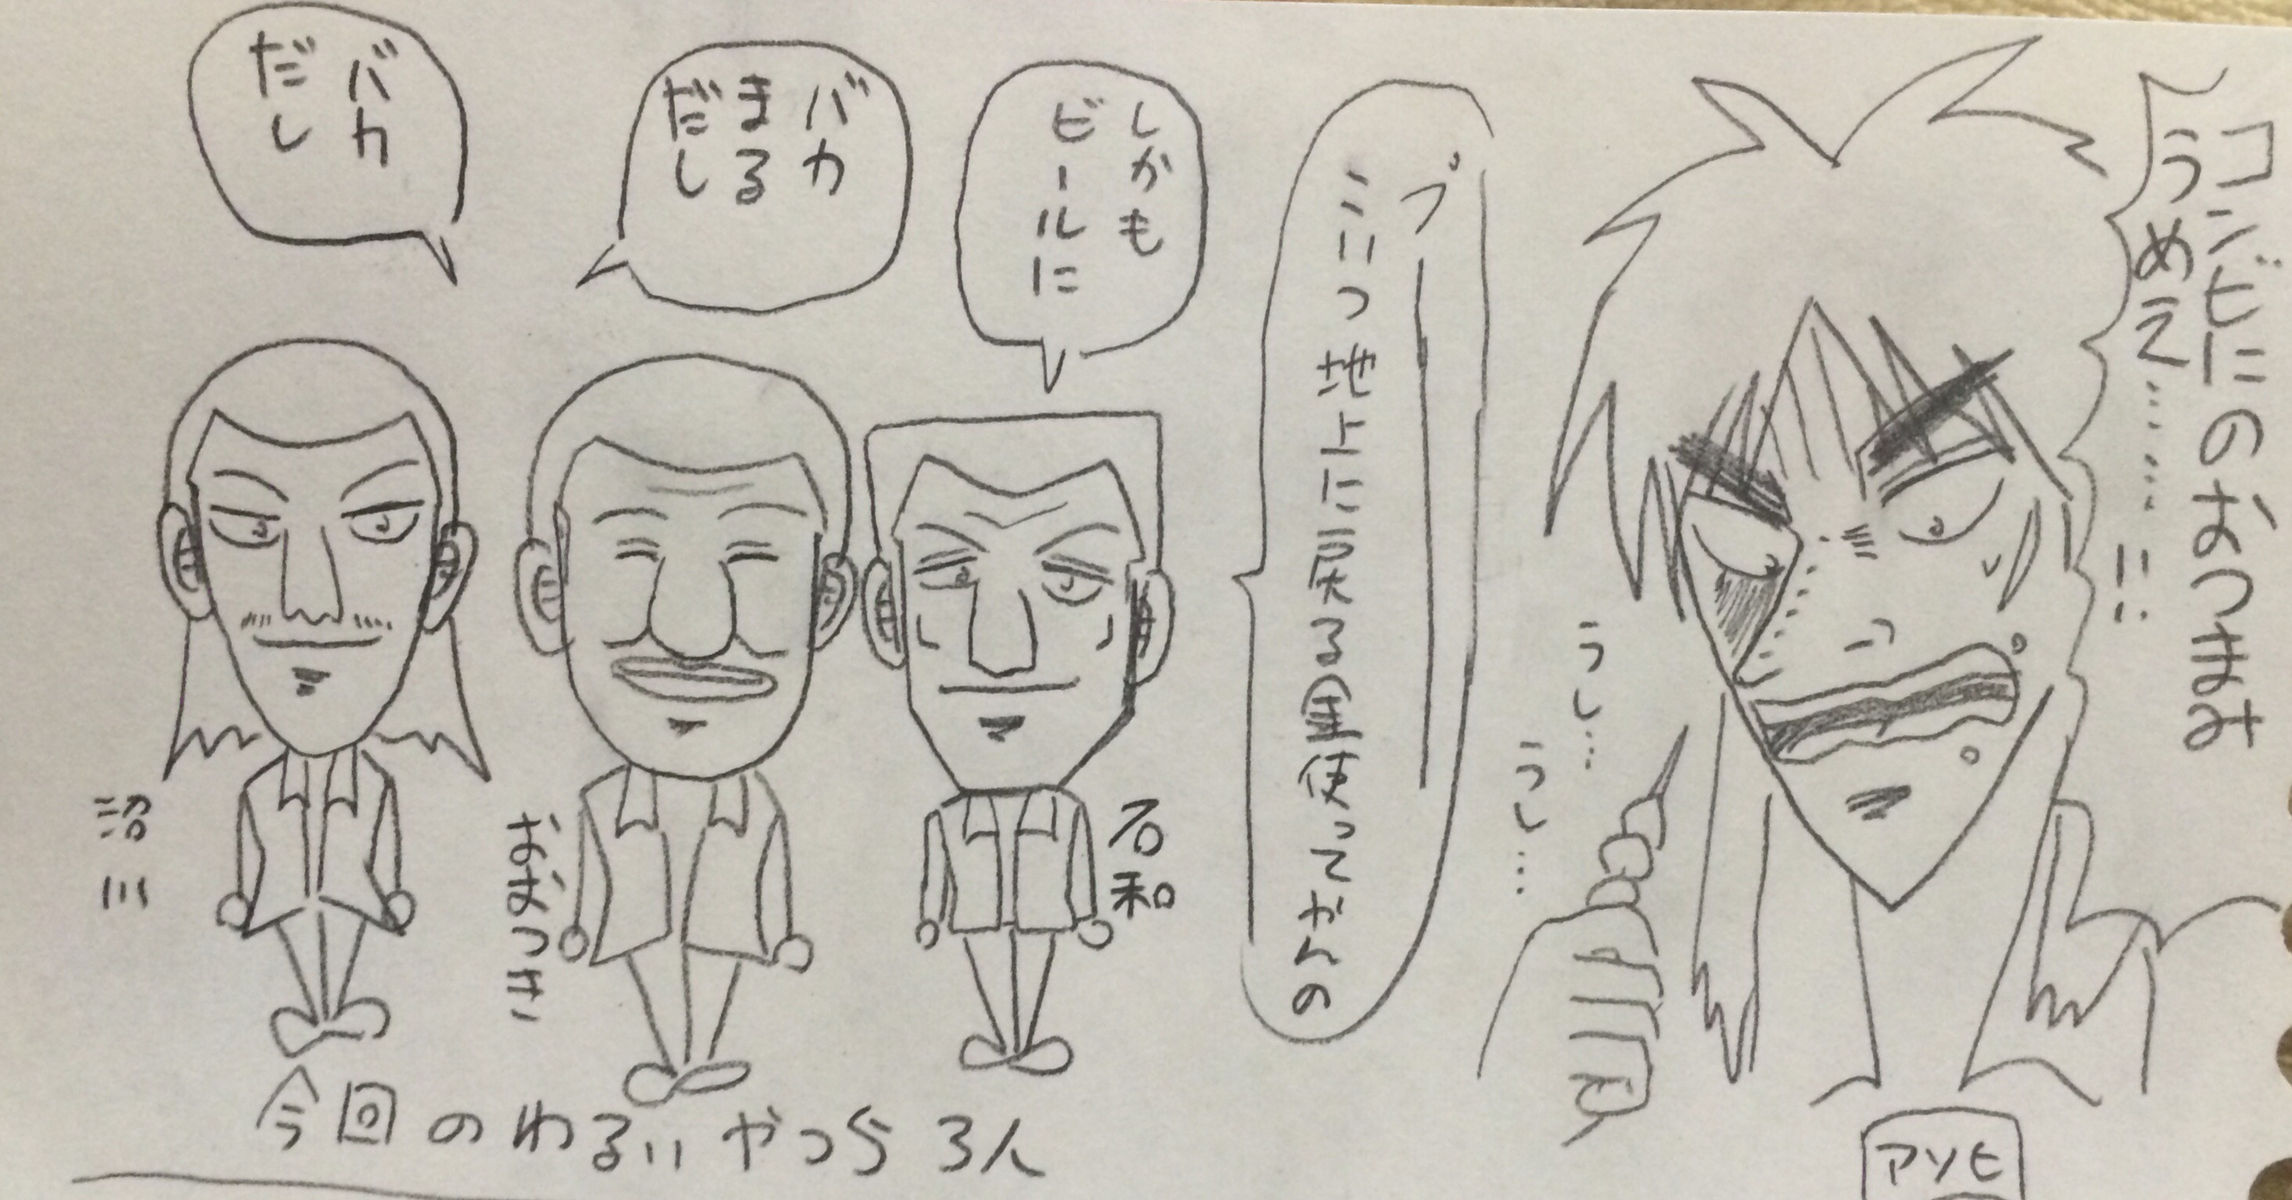 コンビニのおつまみ
うめえ………!!
うし…
うし…
アソヒ
プ
こいつ地下に戻る
使ってからの
しかも
ビールに
バカ
まる
だし
バカ
だし
石和
おおつき
沼川
今回のわるいやつら3人